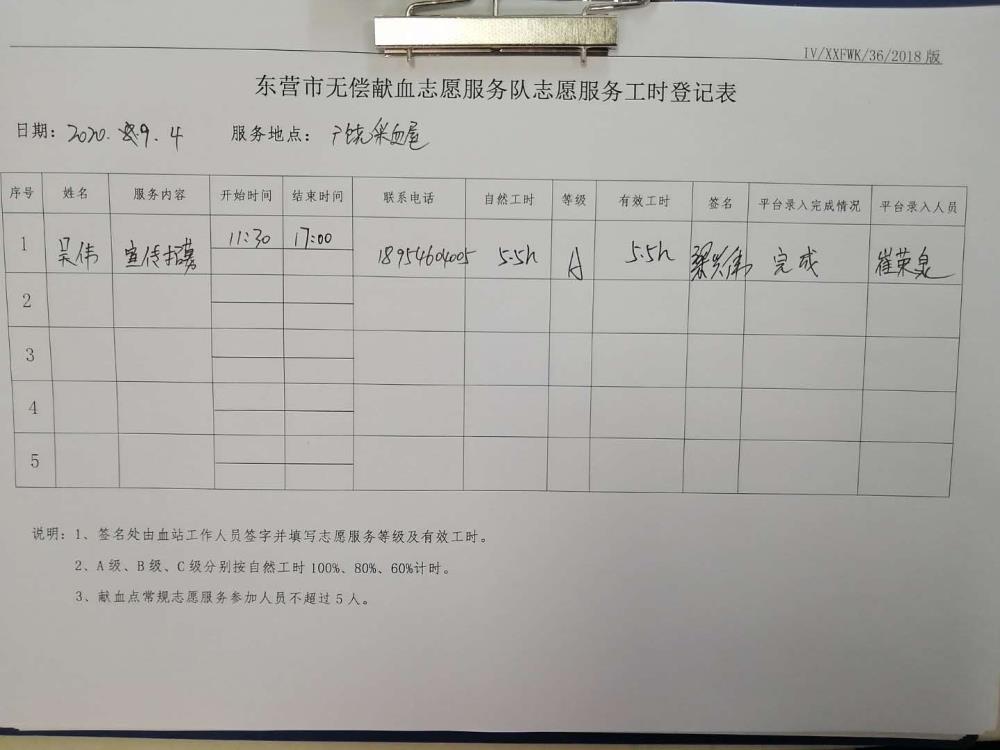 IV/XXFWK/36/2018版
东营市无偿献血志愿服务队志愿服务工时登记表
日期：2020.9.4 服务地点：广饶采血屋
序号 姓名 服务内容 开始时间 结束时间 联系电话 自然工时 等级 有效工时 签名 平台录入完成情况 平台录入人员
1 吴伟 宣传招募 11:30 17:00 18954604005 5.5h A 5.5h 梁兴伟 完成 崔荣泉
2
3
4
5
说明：1、签名处由血站工作人员签字并填写志愿服务等级及有效工时。
2、A级、B级、C级分别按自然工时100%、80%、60%计时。
3、献血点常规志愿服务参加人员不超过5人。